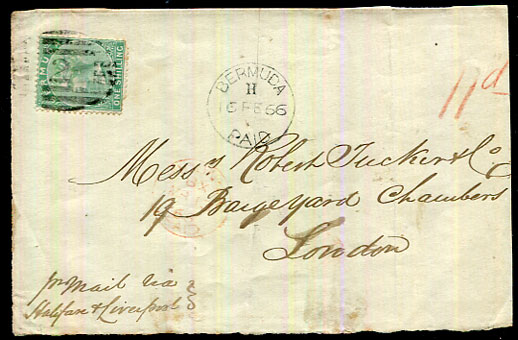 BERMUDA
ONE SHILLING
BERMUDA
H
16 FE 66
PAID
11d
Mess rs Robert Tucker & Co
19 Barge Yard Chambers
London
pr Mail via
Halifax & Liverpool